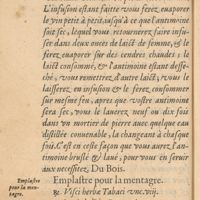 L'infusion estant faitte vous ferez euaporer
le vin petit à petit, iusqu'à ce que l'antimoine
soit sec, lequel vous retournerez faire infu-
ser dans deux onces de laict de femme, & le
ferez euaporer sur des cendres chaudes ; le
laict consommé, & l'antimoine estant desse-
ché, vous remettrez d'autre laict, vous le
laisserez en infusion & le ferez consommer
sur mesme feu, apres que vostre antimoine
sera sec, vous le lauerez neuf ou dix fois
dans vn mortier de pierre auec quelque eau
distillée conuenable, la changeant à chasque
fois. C'est en ceste façon que vous aurez, l'an-
timoine bruslé & laué, pour vous en seruir
aux necessitez, Du Bois.
Emplastre pour la mentagre.
Emplastre
pour la men-
tagre.
℞. Visci herbæ Tabaci vnc. viij.